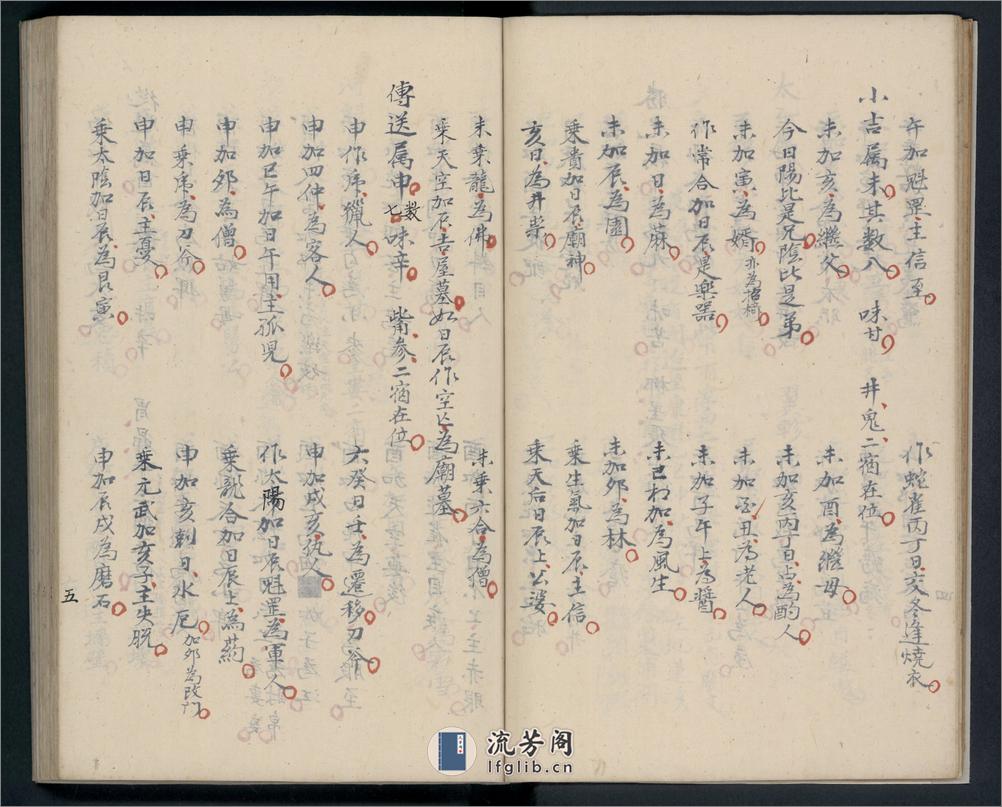 午加魁罡主信至 作蛇雀丙丁日亥冬逢燒衣
小吉属未其數八 味甘 井鬼二宿在位
未加亥為繼父 未加酉為繼母
今日陽比是兄陰比是弟 未加亥丙丁日占為酌人
未加寅為婿 未加丑為老人
作常合加日辰是樂器 未加子午上為醬
未加日為麻 未巳相加為風生
未加辰為園 未加卯為林
乘貴加日辰廟神 乘生氣加日辰主信
亥日為井祟 乘天后日辰上公婆
未乘龍為佛 未乘六合為僧
乘天空加辰吉屋墓如日辰作空亡為廟墓
傳送属申數七味辛 觜參二宿在位
申作虎獵人 六癸日壬為遷移刀斧
申加四仲為客人 申加戌亥仇人
申加巳午加日午用主孤児 作太陽加日辰魁罡為軍人
申加卯為僧 乘龍合加日辰上為葯
申乘虎為刀斧 申加亥剌日水厄 加卯為改門
申加日辰主憂 乘元武加亥子主失脱
乘太陰加日辰為
申加辰戌為磨石
五
流芳阁
lfglib.cn